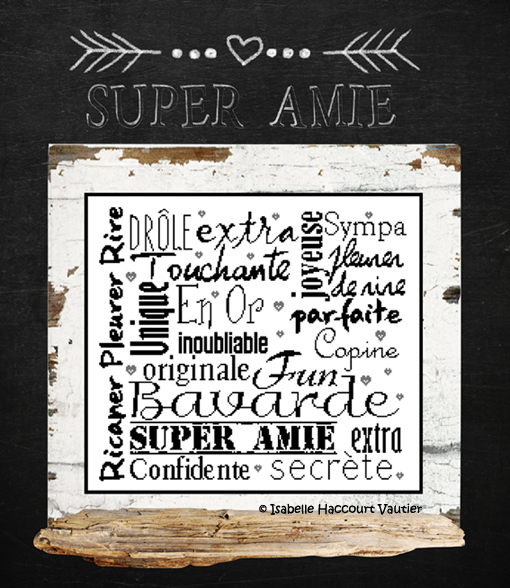 SUPER AMIE
Ricaner Pleurer Rire
DRÔLE extra
joyeuse
Sympa
Touchante
pleurer
de rire
Unique
En Or
parfaite
inoubliable
Copine
originale Fun
Bavarde
SUPER AMIE extra
Confidente secrète
© Isabelle Haccourt Vautier